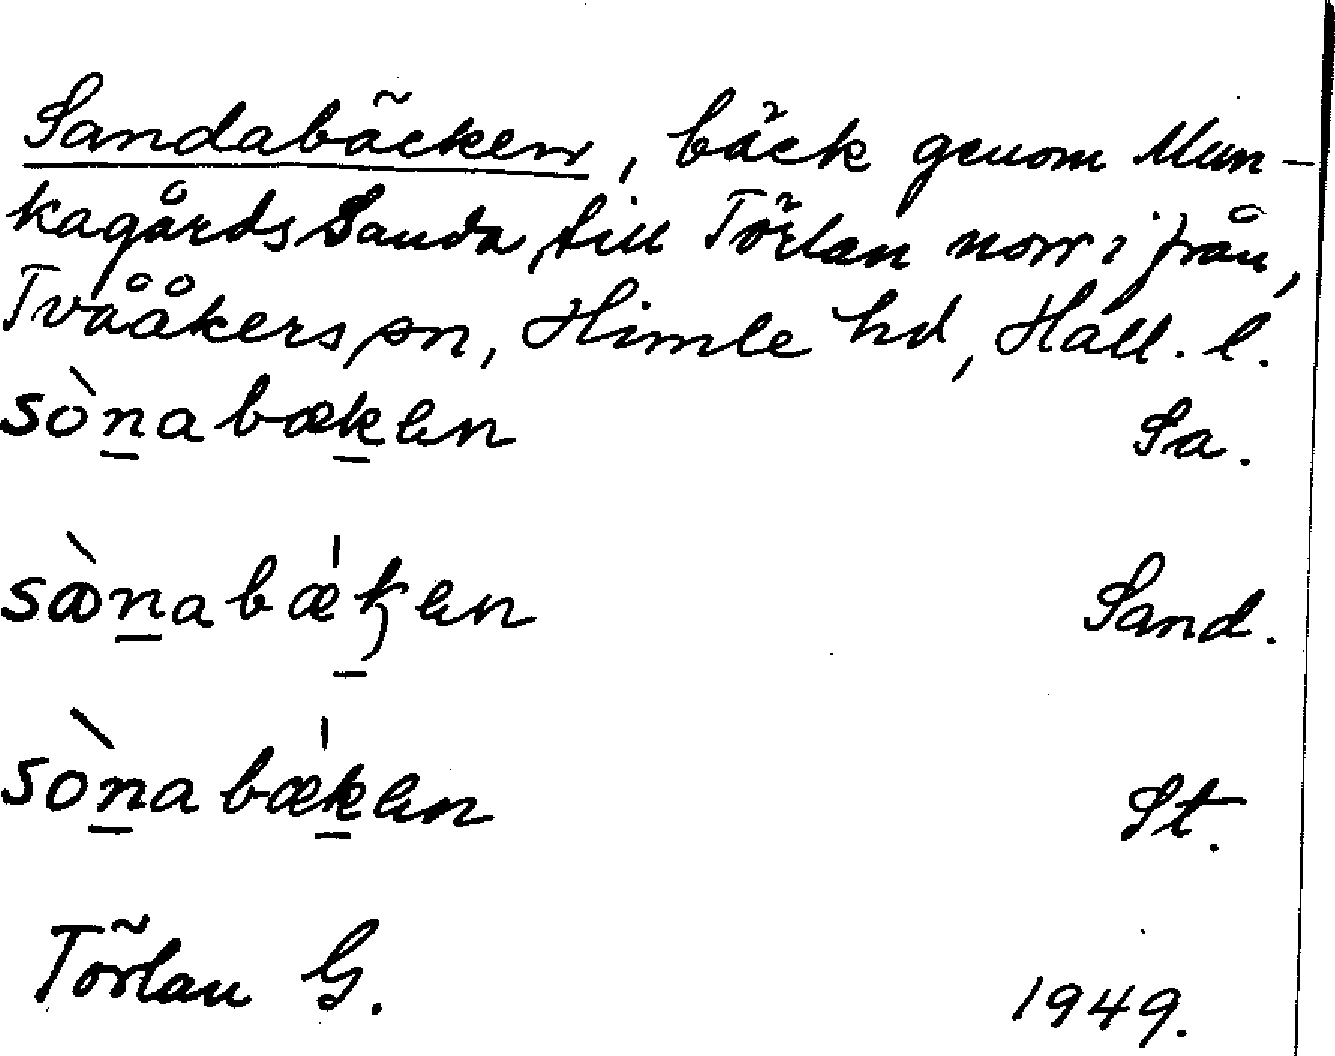 Sandabäcken, bäck genom Mun-
kagårds Sanda, till Törlan norrifrån,
Tvååkers sn, Himle hd, Hall. l.
sò̱nabæḵən Sa.
sɑ̀ṉabǽꞣən Sand.
sòṉabǽḵən St.
Törlan G. 1949.